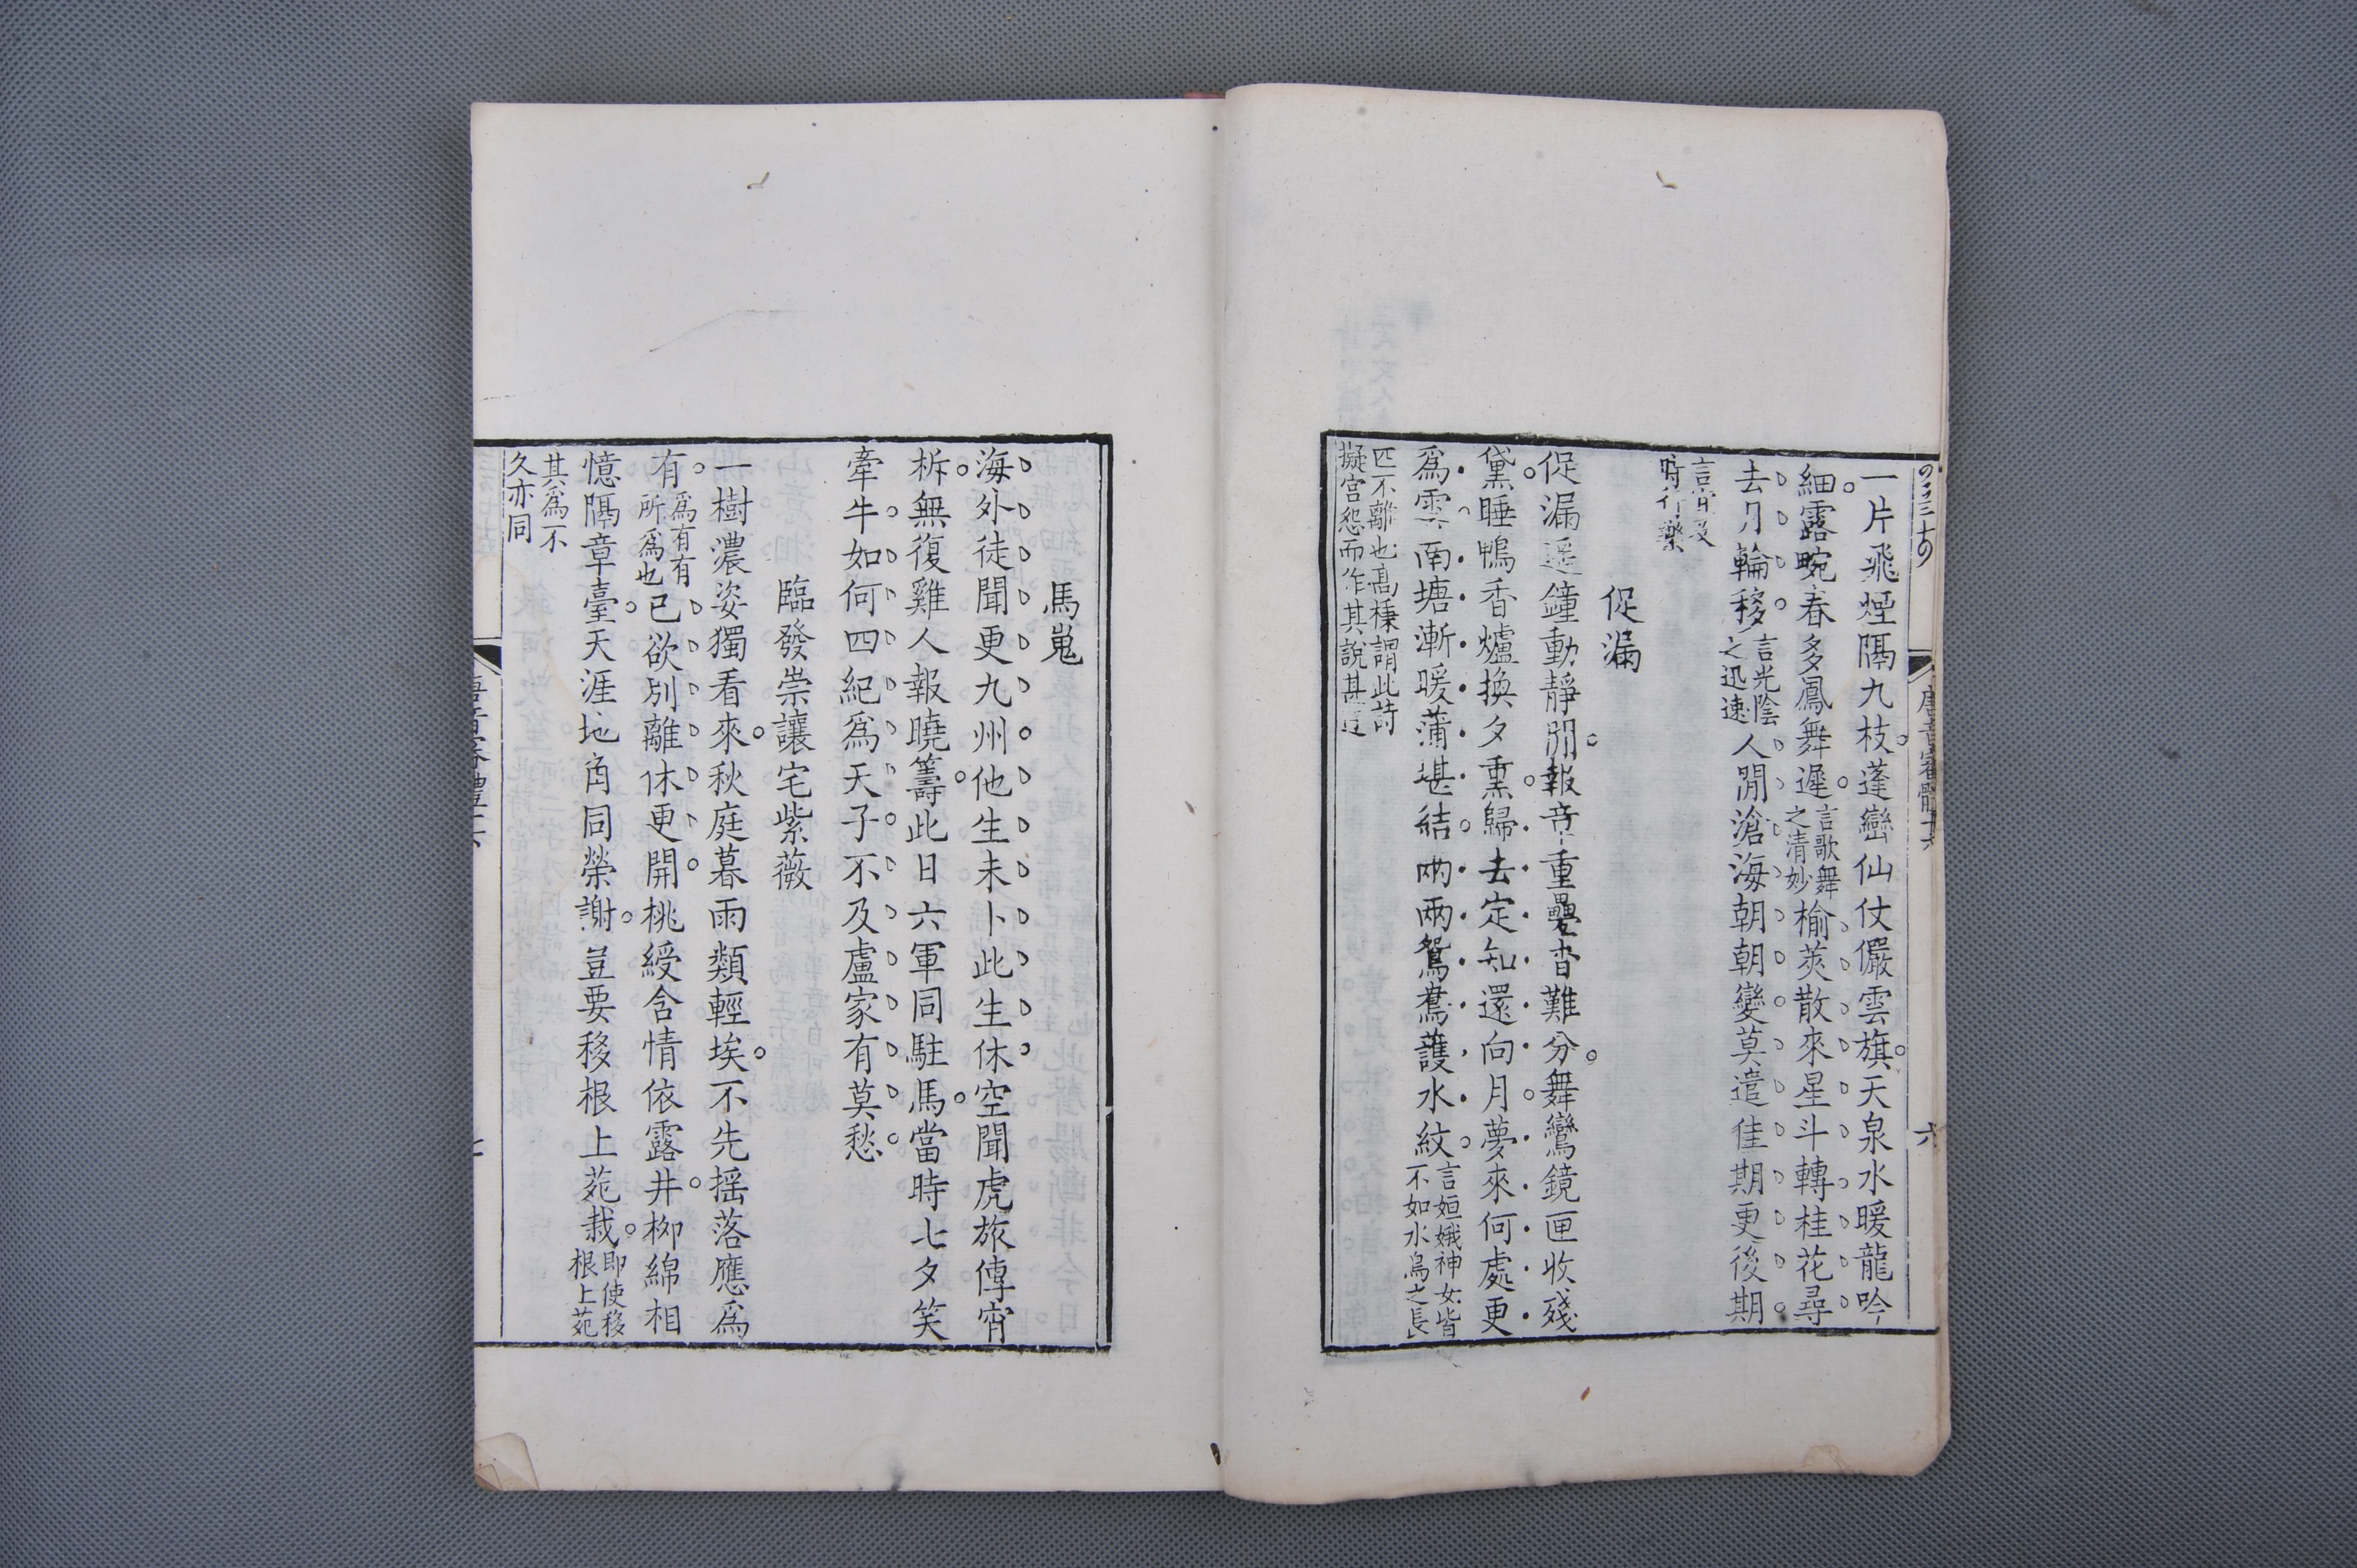 一片飛煙隔九枝蓬巒仙仗儼雲旗天泉水暖龍吟
細露畹春多鳳舞遲言歌舞之清妙榆莢散來星斗轉桂花尋
去月輪移言光陰之迅速人間滄海朝朝變莫遣佳期更後期
言當及時行樂
促漏
促漏遥鐘動靜聞報章重疊杳難分舞鸞鏡匣收殘
黛睡鴨香爐換夕熏歸去定知還向月夢來何處更
爲雲南塘漸暖蒲堪結兩兩鴛鴦護水紋言姮娥神女皆不如水鳥之長
匹不離也高棅謂此詩擬宫怨而作其說甚
唐音審體十六
六
馬嵬
海外徒聞更九州他生未卜此生休空聞虎旅傳宵
柝無復雞人報曉籌此日六軍同駐馬當時七夕笑
牽牛如何四紀爲天子不及盧家有莫愁
臨發崇讓宅紫薇
一樹濃姿獨看來秋庭暮雨類輕埃不先揺落應爲
有爲有有所爲也已欲别離休更開桃綬含情依露井柳綿相
憶隔章臺天涯地角同榮謝豈要移根上苑栽即使移根上苑
其爲不久亦同